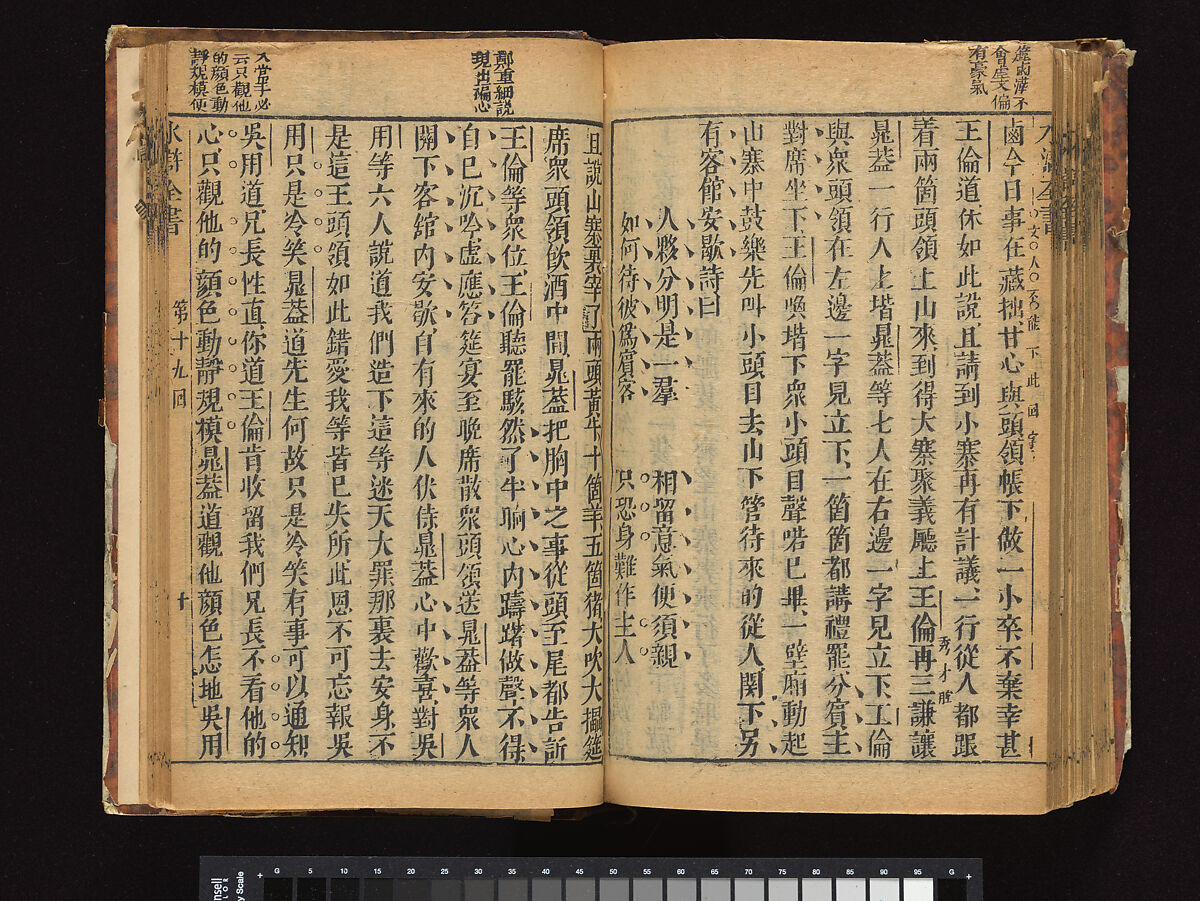 鹵今日事在藏拙甘心與頭領帳下做一小卒不棄幸甚
王倫道休如此說且請到小寨再有計議一行從人都跟
着兩箇頭領上山來到得大寨聚義廳上王倫再三謙讓
秀才腔
晁蓋一行人上堦晁蓋等七人在右邊一字兒立下王倫
與衆頭領在左邊一字兒立下一箇箇都講禮罷分賓主
對席坐下王倫喚堦下衆小頭目聲喏已畢一壁廂動起
山寨中鼓樂先叫小頭目去山下管待來的從人關下另
有客館安歇詩曰
入夥分明是一羣 相留意氣便須親
如何待彼爲賓客 只恐身難作主人
鄭重細說
現出褊心
且說山寨裏宰了兩頭黃牛十箇羊五箇猪大吹大擂筵
席衆頭領飲酒中間晁蓋把胸中之事從頭至尾都告訴
王倫等衆位王倫聽罷駭然了半晌心內躊躇做聲不得
自已沉吟虛應答筵宴至晚席散衆頭領送晁蓋等衆人
關下客舘內安歇自有來的人伏侍晁蓋心中歡喜對吳
用等六人說道我們造下這等迷天大罪那裏去安身不
是這王頭領如此錯愛我等皆已失所此恩不可忘報吳
用只是冷笑晁蓋道先生何故只是冷笑有事可以通知
吳用道兄長性直你道王倫肯收留我們兄長不看他的
心只觀他的顏色動靜規模晁蓋道觀他顏色怎地吳用
云只觀他
的顏色動
靜規模便
水滸全書 第十九回 十
G 5 10 15 20 30 40 50 60 70 75 80 85 90 95 G